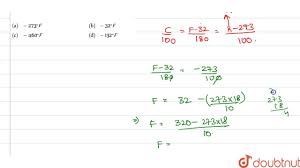 (a) -273°F (b) -32°F
(c) -460°F (d) -132°F
C/100 = F-32/180 = k-273/100
F-32/180 = -273/100
F = 32 - (273×18)/10
273
18
4
⇒) F = 320-273×18/10
F =
doubtnut